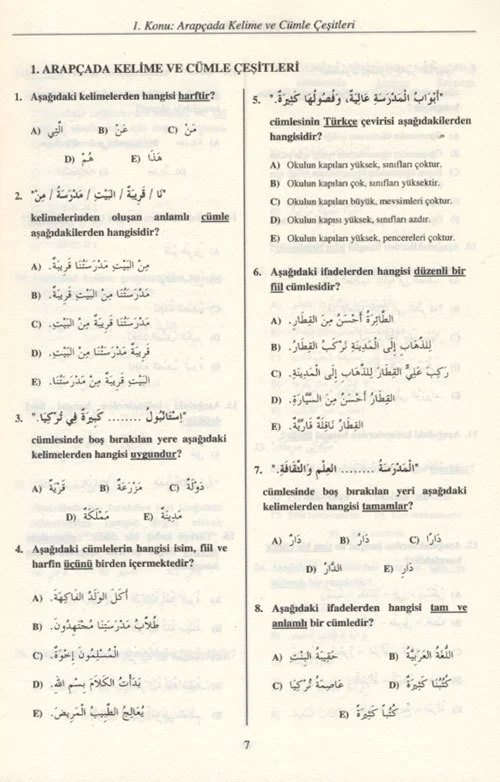 1. Konu: Arapçada Kelime ve Cümle Çeşitleri
1. ARAPÇADA KELİME VE CÜMLE ÇEŞİTLERİ
1. Aşağıdaki kelimelerden hangisi harftir?
A) الَّتِي B) عَنْ C) مَنْ
D) هُمْ E) هَذَا
2. "نَا / قَرِيبَةٌ / البَيْتِ / مَدْرَسَةُ / مِنْ"
kelimelerinden oluşan anlamlı cümle
aşağıdakilerden hangisidir?
A) مِنْ البَيْتِ مَدْرَسَتُنَا قَرِيبَةٌ.
B) مَدْرَسَتُنَا مِنَ البَيْتِ قَرِيبَةٌ.
C) مَدْرَسَتُنَا قَرِيبَةٌ مِنَ البَيْتِ.
D) قَرِيبَةٌ مَدْرَسَتُنَا مِنَ البَيْتِ.
E) البَيْتِ قَرِيبَةٌ مِنْ مَدْرَسَتُنَا.
3. "إِسْتَانْبُولُ ........ كَبِيرَةٌ فِي تُرْكِيَا."
cümlesinde boş bırakılan yere aşağıdaki
kelimelerden hangisi uygundur?
A) قَرْيَةٌ B) مَزْرَعَةٌ C) دَوْلَةٌ
D) مَمْلَكَةٌ E) مَدِينَةٌ
4. Aşağıdaki cümlelerin hangisi isim, fiil ve
harfin üçünü birden içermektedir?
A) أَكَلَ الوَلَدُ الفَاكِهَةَ.
B) طُلاَّبُ مَدْرَسَتِنَا مُجْتَهِدُونَ.
C) المُسْلِمُونَ إِخْوَةٌ.
D) بَدَأْتُ الكَلاَمَ بِسْمِ اللهِ.
E) يُعَالِجُ الطَّبِيبُ المَرِيضَ.
5. "أَبْوَابُ المَدْرَسَةِ عَالِيَةٌ، وَفُصُولُهَا كَثِيرَةٌ."
cümlesinin Türkçe çevirisi aşağıdakilerden
hangisidir?
A) Okulun kapıları yüksek, sınıfları çoktur.
B) Okulun kapıları çok, sınıfları yüksektir.
C) Okulun kapıları büyük, mevsimleri çoktur.
D) Okulun kapısı yüksek, sınıfları azdır.
E) Okulun kapıları yüksek, pencereleri çoktur.
6. Aşağıdaki ifadelerden hangisi düzenli bir
fiil cümlesidir?
A) الطَّائِرَةُ أَحْسَنُ مِنَ القِطَارِ.
B) لِلذَّهَابِ إِلَى المَدِينَةِ تَرْكَبُ القِطَارُ.
C) رَكِبَ عَلِيٌّ القِطَارَ لِلذَّهَابِ إِلَى المَدِينَةِ.
D) القِطَارُ أَحْسَنُ مِنَ السَّيَّارَةِ.
E) القِطَارُ نَاقِلَةٌ قَارِّيَّةٌ.
7. "المَدْرَسَةُ ........ العِلْمِ وَالثَّقَافَةِ."
cümlesinde boş bırakılan yeri aşağıdaki
kelimelerden hangisi tamamlar?
A) دَارٌ B) دَارُ C) دَارًا
D) الدَّارُ E) دَارِ
8. Aşağıdaki ifadelerden hangisi tam ve
anlamlı bir cümledir?
A) حَقِيبَةُ البِنْتِ B) اللُّغَةُ العَرَبِيَّةُ
C) عَاصِمَةُ تُرْكِيَا D) كُتُبُنَا كَثِيرَةٌ
E) كُتُبًا كَثِيرَةً
7